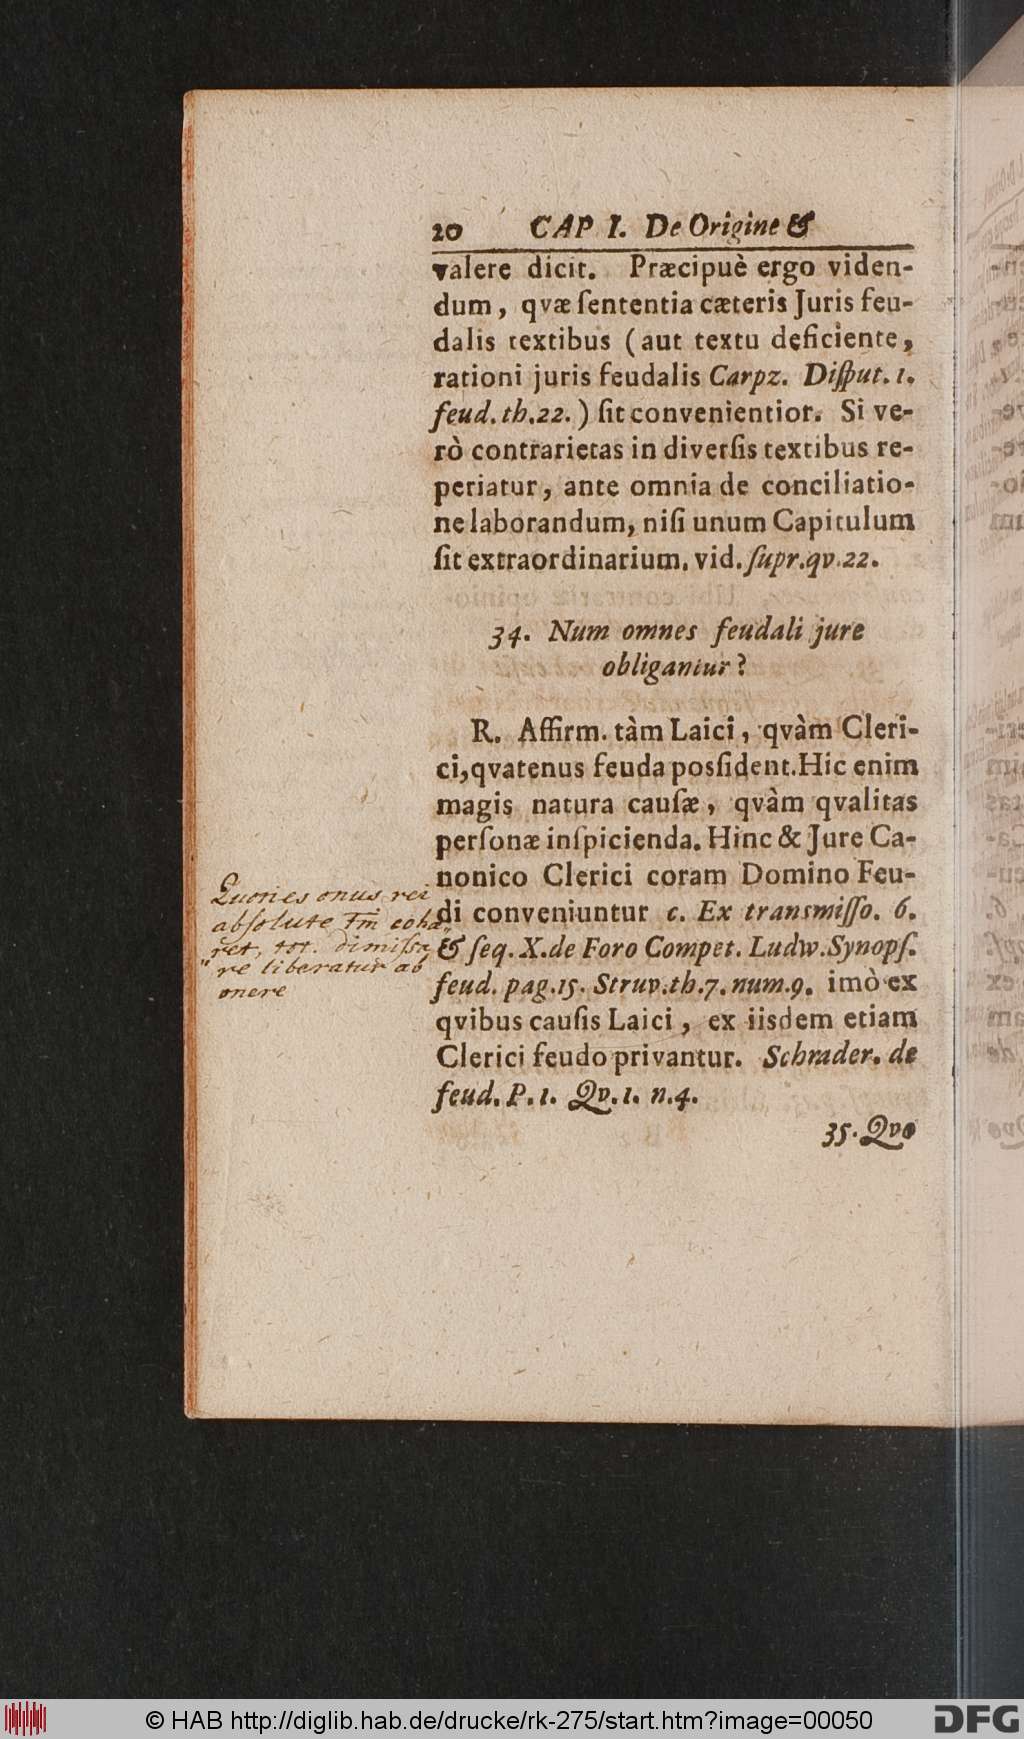 20 CAP I. De Origine &
valere dicit. Præcipuè ergo viden-
dum, qvæ ſententia cæteris Juris feu-
dalis textibus (aut textu deficiente,
rationi juris feudalis Carpz. Diſput. 1.
feud. th. 22.) ſit convenientior. Si ve-
rò contrarietas in diverſis textibus re-
periatur, ante omnia de conciliatio-
ne laborandum, niſi unum Capitulum
ſit extraordinarium. vid. ſupr. qv. 22.
34. Num omnes feudali jure
obligantur?
R. Affirm. tàm Laici, qvàm Cleri-
ci, qvatenus feuda posſident. Hic enim
magis natura cauſæ, qvàm qvalitas
perſonæ inſpicienda. Hinc & Jure Ca-
nonico Clerici coram Domino Feu-
di conveniuntur c. Ex transmiſſo. 6.
& ſeq. X. de Foro Compet. Ludw. Synopſ.
feud. pag. 15. Struv. th. 7. num. 9. imò ex
qvibus cauſis Laici, ex iisdem etiam
Clerici feudo privantur. Schrader. de
feud. P. 1. Qv. 1. n. 4.
35. Qvo
Quoties onus rei
abſolute tm̄ cohæ
ret, tot. dimiſsa
re liberatur ab
onere
© HAB http://diglib.hab.de/drucke/rk-275/start.htm?image=00050
DFG